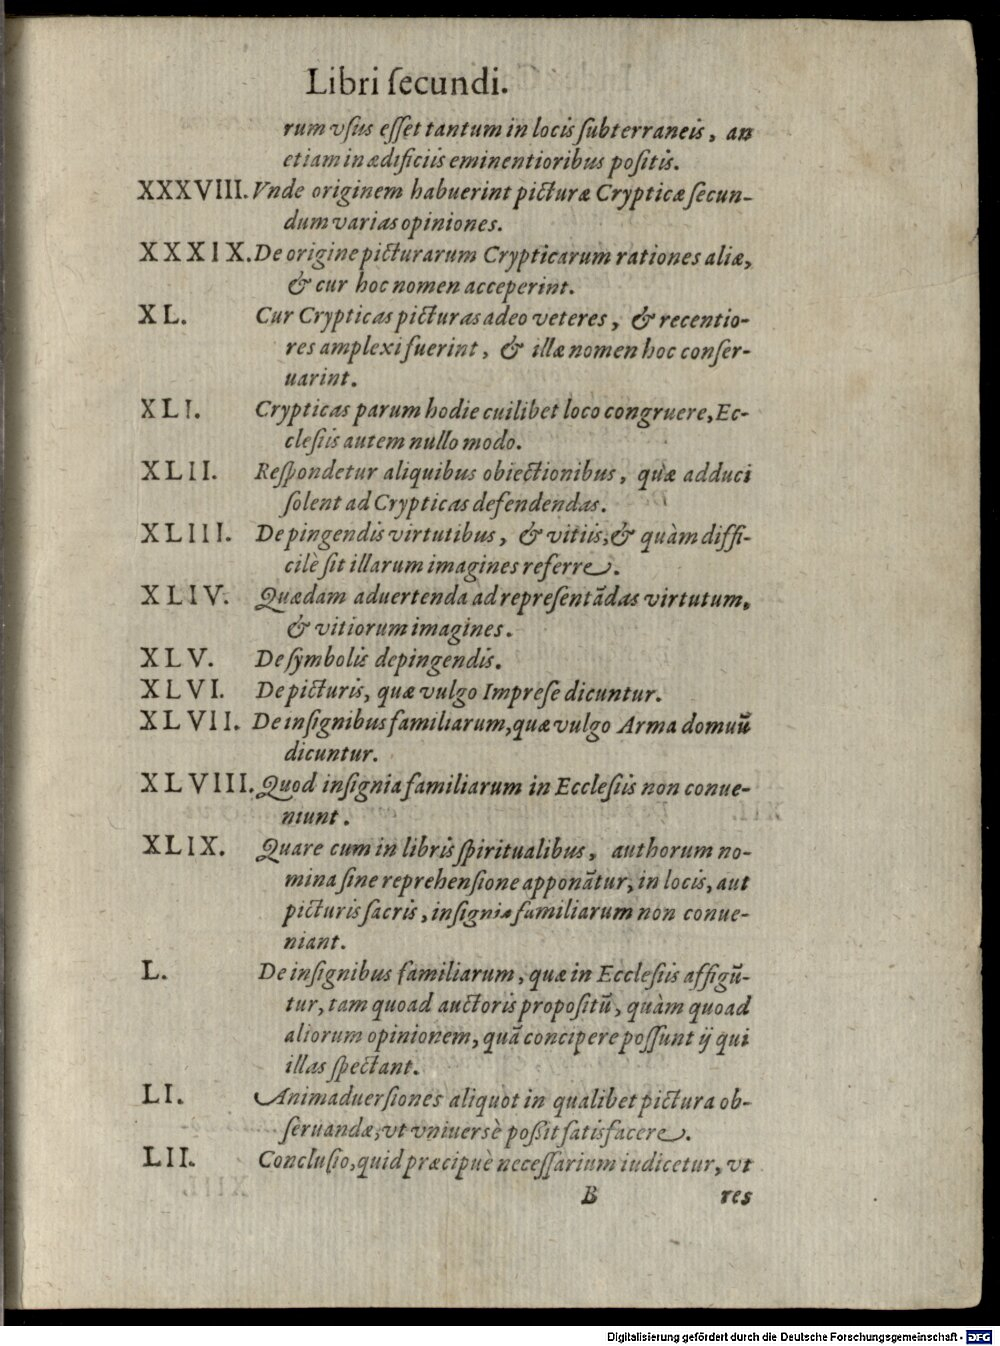 Libri ſecundi.
rum vſus eſſet tantum in locis ſubterraneis, an
etiam in ædificiis eminentioribus poſitis.
XXXVIII. Vnde originem habuerint picturæ Crypticæ ſecun-
dum varias opiniones.
XXXIX. De origine picturarum Crypticarum rationes aliæ,
& cur hoc nomen acceperint.
XL. Cur Crypticas picturas adeo veteres, & recentio-
res amplexi fuerint, & illæ nomen hoc conſer-
uarint.
XLI. Crypticas parum hodie cuilibet loco congruere, Ec-
cleſiis autem nullo modo.
XLII. Reſpondetur aliquibus obiectionibus, quæ adduci
ſolent ad Crypticas defendendas.
XLIII. De pingendis virtutibus, & vitiis, & quàm diffi-
cilè ſit illarum imagines referre.
XLIV. Quædam aduertenda ad repreſentãdas virtutum,
& vitiorum imagines.
XLV. De ſymbolis depingendis.
XLVI. De picturis, quæ vulgo Impreſe dicuntur.
XLVII. De inſignibus familiarum, quæ vulgo Arma domuũ
dicuntur.
XLVIII. Quod inſignia familiarum in Eccleſiis non conue-
niunt.
XLIX. Quare cum in libris ſpiritualibus, authorum no-
mina ſine reprehenſione apponãtur, in locis, aut
picturis ſacris, inſignia familiarum non conue-
niant.
L. De inſignibus familiarum, quæ in Eccleſiis affigũ-
tur, tam quoad auctoris propoſitũ, quàm quoad
aliorum opinionem, quã concipere poſſunt ij qui
illas ſpectant.
LI. Animaduerſiones aliquot in qualibet pictura ob-
ſeruandæ, vt vniuersè poßit ſatisfacere.
LII. Concluſio, quid præcipuè neceſſarium iudicetur, vt
B res
Digitalisierung gefördert durch die Deutsche Forschungsgemeinschaft - DFG